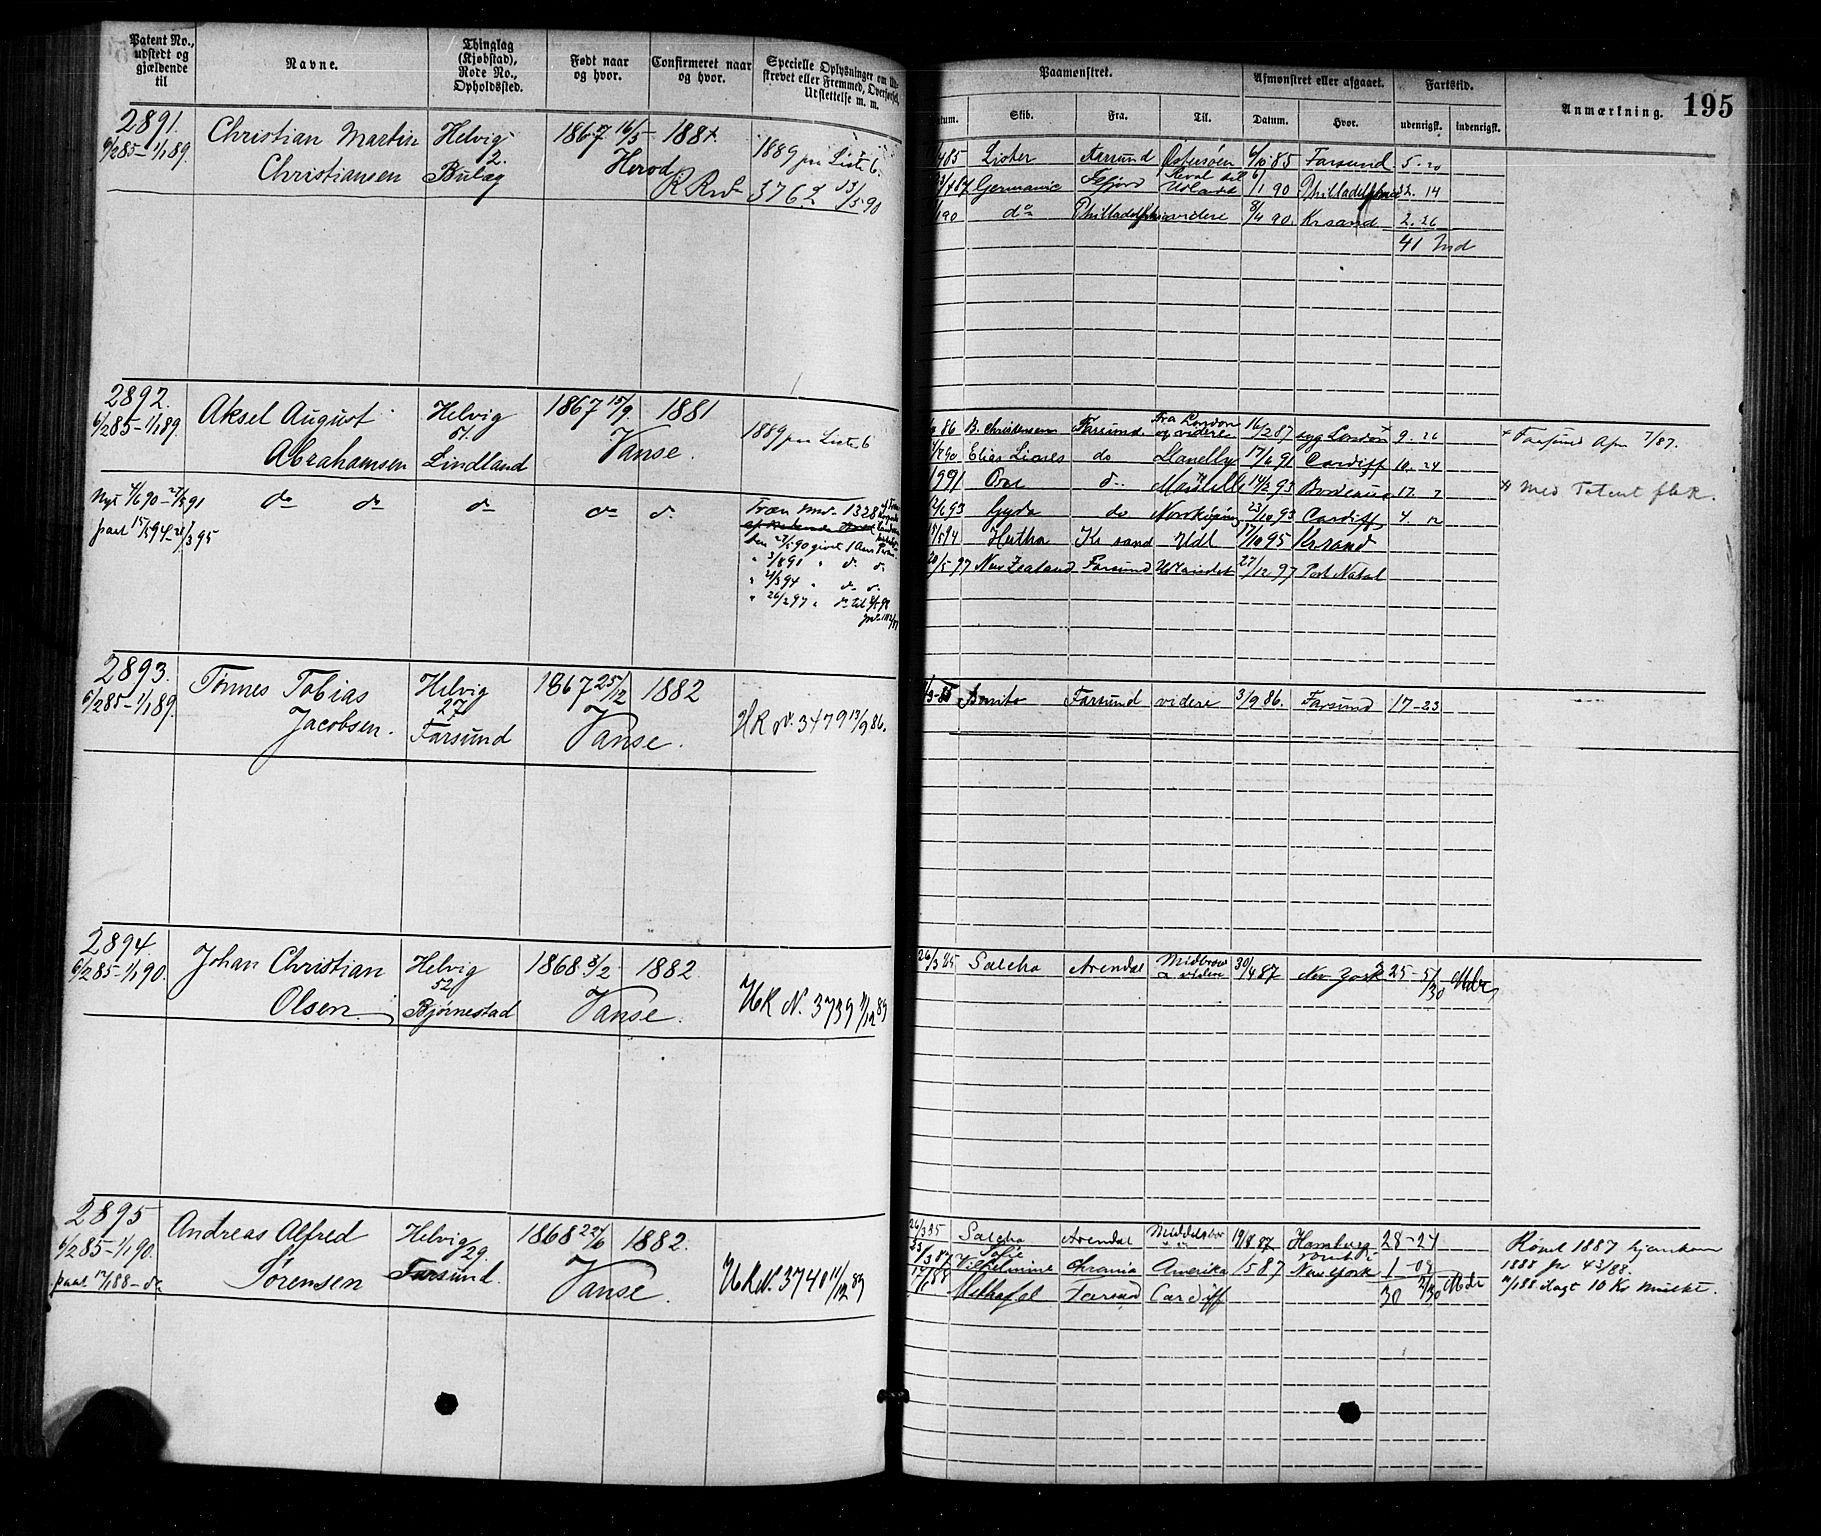 Patent No.,
udstedt og
gjældende
til
Navne.
Thinglag
(Kjøbstad),
Rode No.,
Opholdssted.
Født naar
og hvor.
Confirmeret naar
og hvor.
Specielle Oplysninger om
skrevet eller Fremmed, Overførsel,
Udslettelse m. m.
Paamønstret.
Skib.
Fra.
Til.
Afmønstret eller afgaaet.
Datum.
Hvor.
Fartstid.
udenrigsk.
indenrigsk.
Anmærkning.
195
2891.
6/2 85 – 1/1 89.
Christian Martin
Christiansen
Helvig
2.
Bulæg
1867 16/5
Herod
1889 pr Liste 6.
3762 13/5 90
Lister Farsund Østersøen 6/10 85 Farsund 5. 20
Germania Isfjord 6/1 90 Philladelphia 32. 14
do Philladelphia videre 8/4 90. Krsand 2. 26
41 Md
2892.
6/2 85 – 1/1 89.
Aksel August
Abrahamsen
Helvig
51.
Lindland
1867 15/9.
1881
Vanse.
1889 pr Liste 6
B. Christensen Farsund. Fra London og videre 16/2 87 syg London 9. 26
+ Farsund Apr 7/87.
Elias Lianes do Llanelly 17/6 91 Cardiff 10. 24
14/2 93 Bordeaux 17. 7
Med Patent flk.
Gyda do Norrkøping 23/10 93 Cardiff 4. 12
Hertha Kr sand Udl 17/10 95 Krsand
20/5 97 New Zealand Farsund Udlandet 27/12 97 Port Natal
Nyt 4/6 90 – 27/5 91
paat 15/5 94 – 21/3 95
do do do do do
Træn No. 1328
den 27/5 90 givet 1 Aars
" 3/8 91 " do do
" 21/3 94 " do do
" 26/2 97 " do til
2893.
6/2 85 – 1/1 89.
Tønnes Tobias
Jacobsen.
Helvig
27
Farsund
1867 25/12
1882
Vanse.
HR N. 3479 13/9 86.
Bonito Farsund videre 3/9 86. Farsund 17 – 23
2894
6/2 85 – 1/1 90.
Johan Christian
Olsen.
Helvig
52
Bjørnestad
1868 3/2
1882
Vanse.
HR N. 3739 11/12 89
26/3 85 Salcha Arendal 30/4 87 New York 25 – 5/30 Mdr
2895
6/2 85 – 1/1 90.
paat 17/1 88 – do
Andreas Alfred
Sørensen
Helvig
29.
Farsund.
1868 22/6
1882.
Vanse.
HR N. 3740 11/12 89
26/3 85 Salcha Arendal Middelsbro 19/8 87 Hamburg 28 – 24
23/3 87 Sofie Vilhelmine Chrania Amerika 15 87 New York 1 – 08
17/1 88 Farsund Cardiff 30 2/30 Mdr
1887 hjemkom
1888 pr 4 3/88.
ilagt 10 Kr Mulkt.